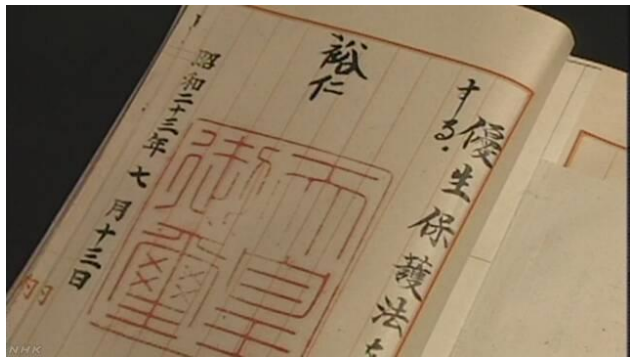 優生保護法
する。
裕仁
天皇
御璽
昭和二十三年七月十三日
NHK